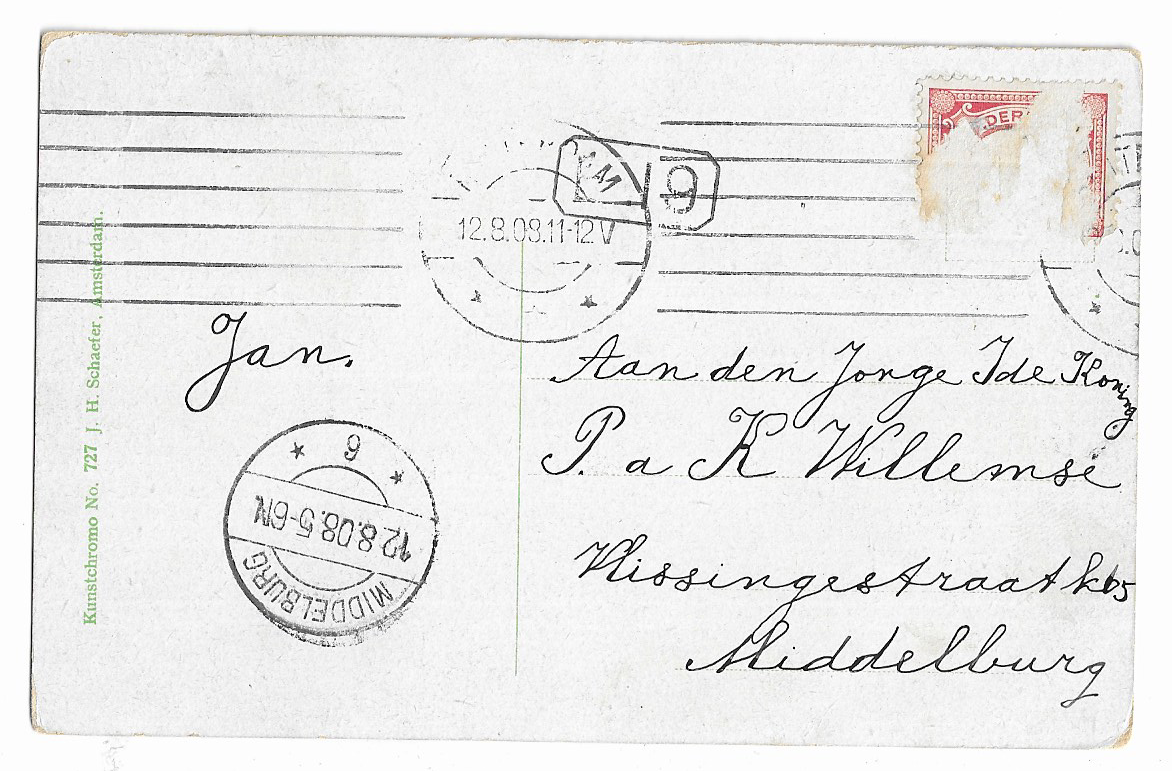 DER
12.8.08.11-12V
9
Jan.
Aan den Jonge Ide Koning
P. a K Willemse
Vlissingestraat k65
Middelburg
6
12.8.08.5-6N
MIDDELBURG
Kunstchromo No. 727 J. H. Schaefer, Amsterdam.